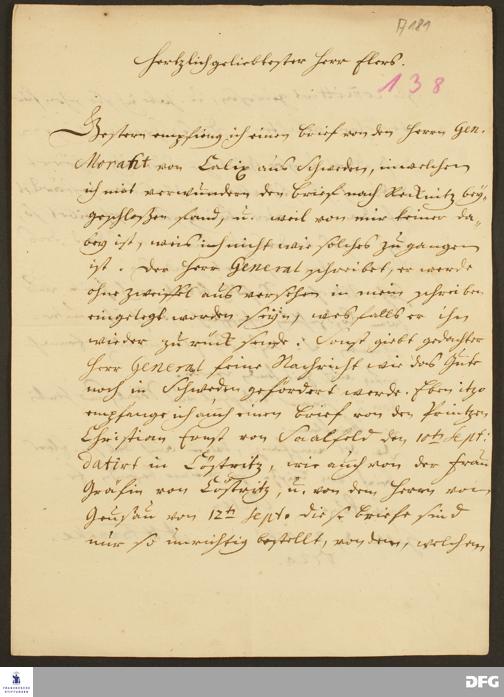 A 181
Hertzlich geliebtester Herr Elers.
138
Gestern empfieng ich einen brief von den Herrn Gen.
von Calix aus Schweden, in welchen
ich mit verwundern den brief nach Recknitz bey-
geschloßen fand, u. weil von mir keiner da-
bey ist, weis ich nicht wie solches zugangen
ist. Der Herr General schreibet, er werde
ohne zweiffel aus versehen in mein schreiben
eingelegt worden seyn, weßfalls er ihn
wieder zurück sende: sonst giebt gedachter
Herr General feine Nachricht wie das Gute
noch in Schweden gefördert werde. Eben itzo
empfange ich auch einen brief von den Printzen
Christian Ernst von Saalfeld den 10ten Sept:
datirt in Cöstritz, wie auch von der Frau
Gräfin von Cöstritz, u. von dem Herrn von
Geußau von 12ten Sept. diese briefe sind
nur so unrichtig bestellt, von dem, welchem
FRANCKESCHE
STIFTUNGEN
DFG